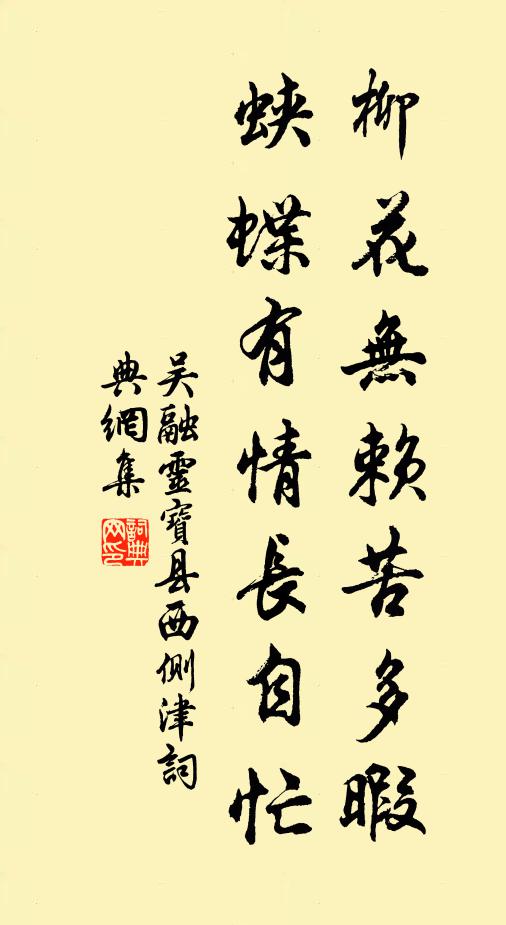 柳花無賴苦多暇
蛺蝶有情長自忙
吴融靈寶县西侧津詞
典網集
詞典网印